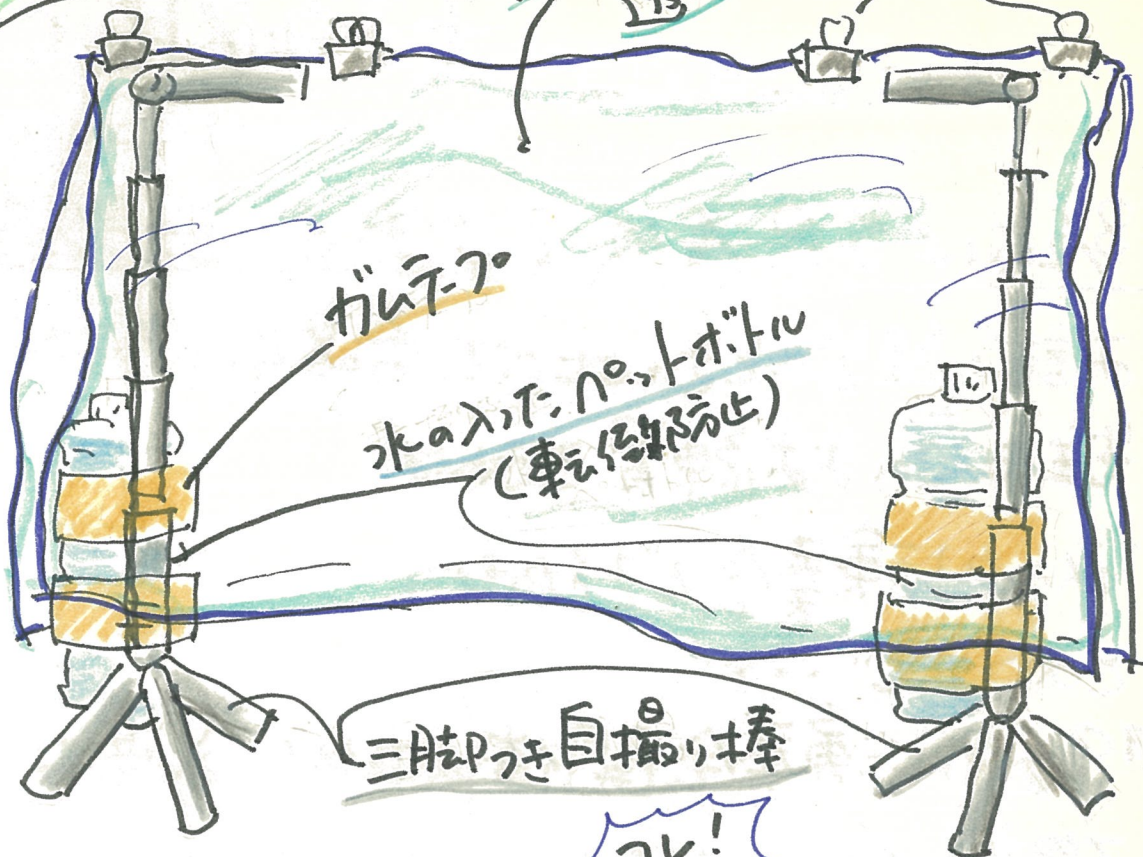 ガムテープ
水の入ったペットボトル
(転倒防止)
三脚つき自撮り棒
コレ!